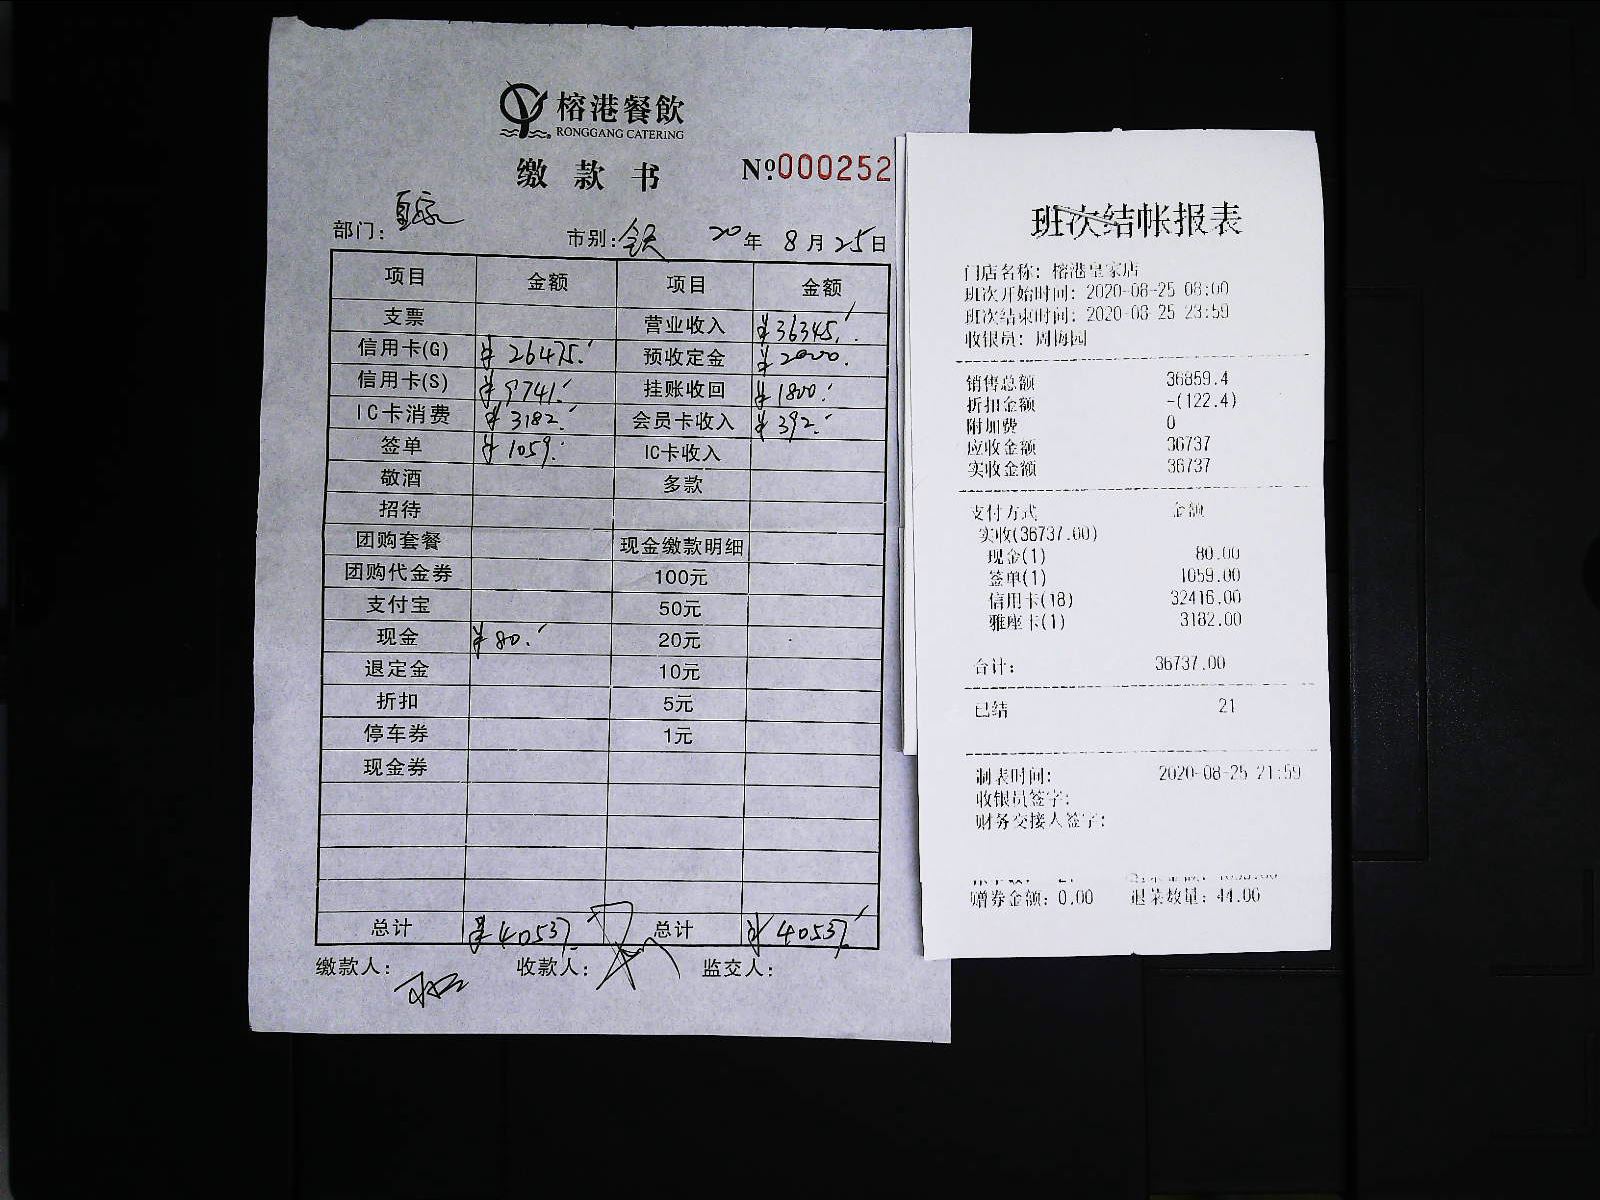 榕港餐飲
RONGGANG CATERING
缴款书
№000252
部门：皇家 市别：全天 20年8月25日
项目 金额 项目 金额
支票 营业收入 ¥36345.
信用卡(G) ¥26475. 预收定金 ¥2000.
信用卡(S) ¥9741. 挂账收回 ¥1800.
IC卡消费 ¥3182. 会员卡收入 ¥392.
签单 ¥1059. IC卡收入
敬酒 多款
招待
团购套餐 现金缴款明细
团购代金券 100元
支付宝 50元
现金 ¥80. 20元
退定金 10元
折扣 5元
停车券 1元
现金券
总计 ¥40537. 总计 ¥40537.
缴款人： 收款人： 监交人：
班次结帐报表
门店名称：榕港皇家店
班次开始时间：2020-08-25 08:00
班次结束时间：2020-08-25 23:59
收银员：周梅园
销售总额 36859.4
折扣金额 -(122.4)
附加费 0
应收金额 36737
实收金额 36737
支付方式 金额
实收(36737.00)
现金(1) 80.00
签单(1) 1059.00
信用卡(18) 32416.00
雅座卡(1) 3182.00
合计： 36737.00
已结 21
制表时间： 2020-08-25 21:59
收银员签字：
财务交接人签字：
赠券金额：0.00 退菜数量：44.06